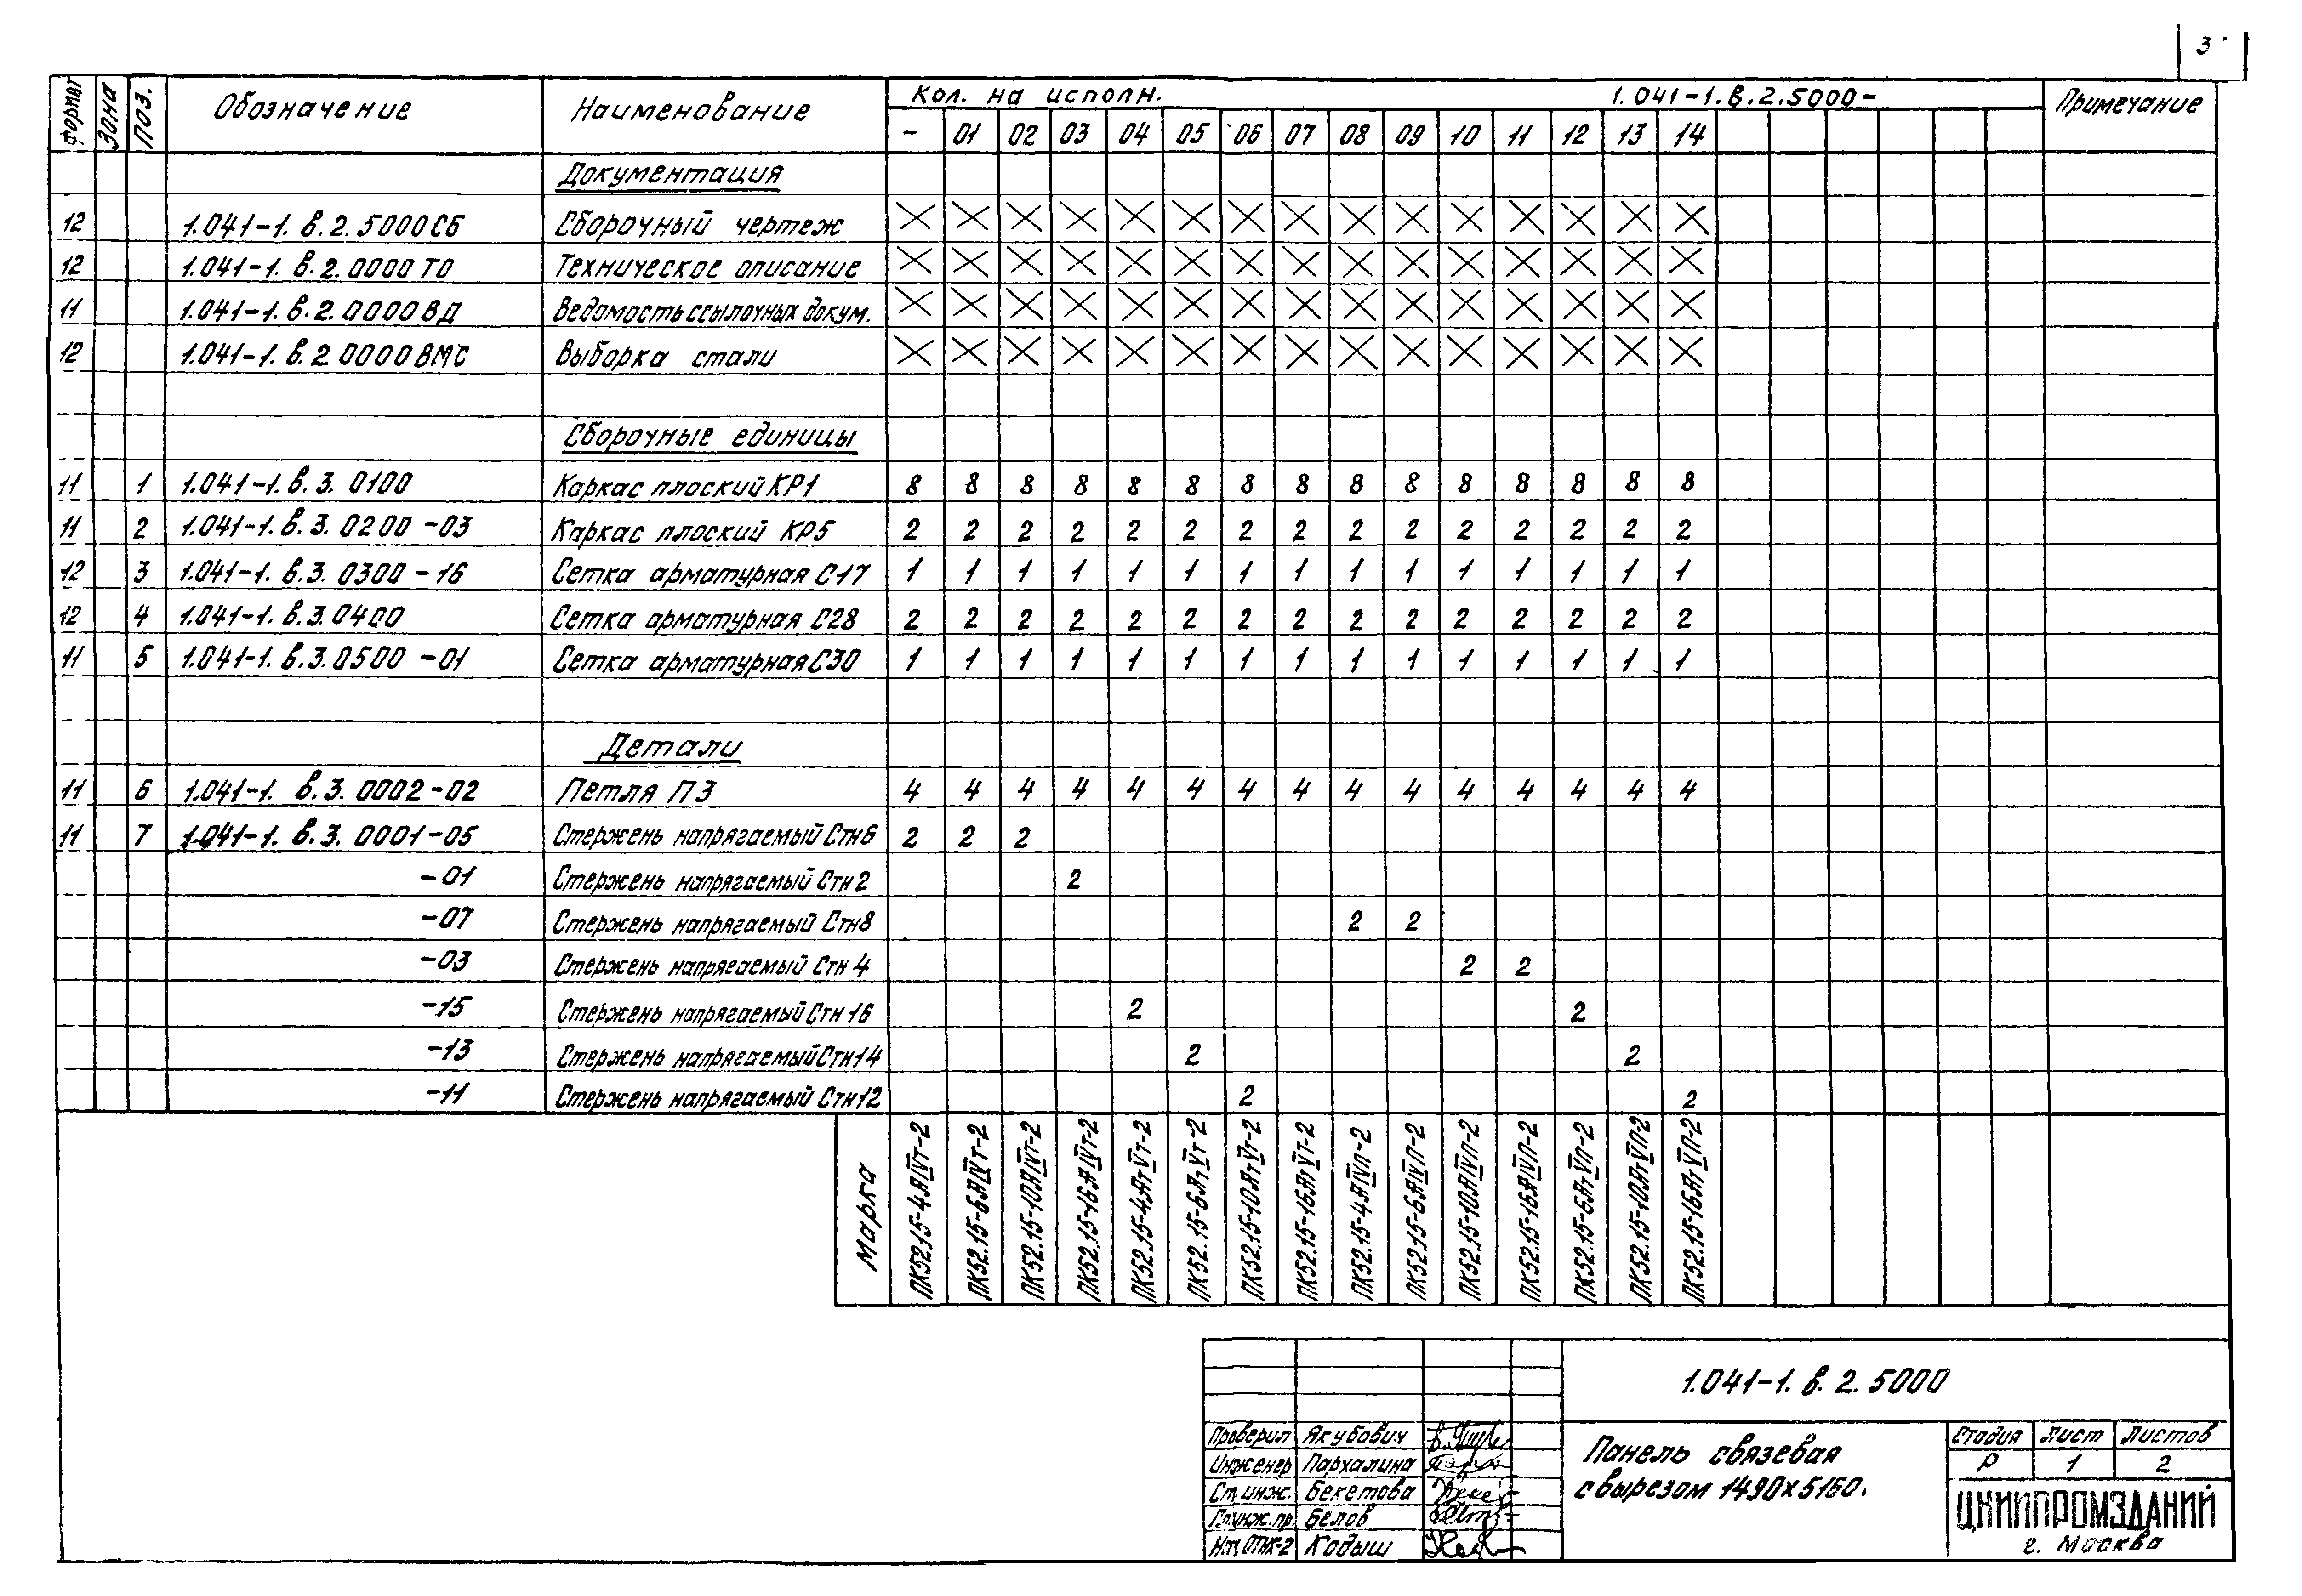 3
Формат Зона Поз. Обозначение Наименование Кол. на исполн. 1.041-1.в.2.5000- Примечание
- 01 02 03 04 05 06 07 08 09 10 11 12 13 14
Документация
12 1.041-1.в.2.5000СБ Сборочный чертеж X X X X X X X X X X X X X X X
12 1.041-1.в.2.0000ТО Техническое описание X X X X X X X X X X X X X X X
11 1.041-1.в.2.0000ВД Ведомость ссылочных докум. X X X X X X X X X X X X X X X
12 1.041-1.в.2 0000ВМС Выборка стали X X X X X X X X X X X X X X X
Сборочные единицы
11 1 1.041-1.в.3.0100 Каркас плоский КР1 8 8 8 8 8 8 8 8 8 8 8 8 8 8 8
11 2 1.041-1.в.3.0200-03 Каркас плоский КР5 2 2 2 2 2 2 2 2 2 2 2 2 2 2 2
12 3 1.041-1.в.3.0300-16 Сетка арматурная С17 1 1 1 1 1 1 1 1 1 1 1 1 1 1 1
12 4 1.041-1.в.3.0400 Сетка арматурная С28 2 2 2 2 2 2 2 2 2 2 2 2 2 2 2
11 5 1.041-1.в.3.0500-01 Сетка арматурная С30 1 1 1 1 1 1 1 1 1 1 1 1 1 1 1
Детали
11 6 1.041-1.в.3.0002-02 Петля П3 4 4 4 4 4 4 4 4 4 4 4 4 4 4 4
11 7 1.041-1.в.3.0001-05 Стержень напрягаемый Стн6 2 2 2
-01 Стержень напрягаемый Стн2 2
-07 Стержень напрягаемый Стн8 2 2
-03 Стержень напрягаемый Стн4 2 2
-15 Стержень напрягаемый Стн16 2 2
-13 Стержень напрягаемый Стн14 2 2
-11 Стержень напрягаемый Стн12 2 2
Марка
ПК52.15-4АIVт-2
ПК52.15-6АIVт-2
ПК52.15-10АIVт-2
ПК52.15-16АIVт-2
ПК52.15-4АтVт-2
ПК52.15-6АтVт-2
ПК52.15-10АтVт-2
ПК52.15-16АтVт-2
ПК52.15-4АIVП-2
ПК52.15-6АIVП-2
ПК52.15-10АIVП-2
ПК52.15-16АIVП-2
ПК52.15-6АтVП-2
ПК52.15-10АтVП-2
ПК52.15-16АтVП-2
1.041-1.в.2.5000
Проверил Якубович
Инженер Пархалина
Ст.инж. Бекетова
Гл.инж.пр. Белов
Нач.ОТНК-2 Кодыш
Панель связевая
с вырезом 1490х5160.
Стадия Лист Листов
Р 1 2
ЦНИИПРОМЗДАНИЙ
г. Москва